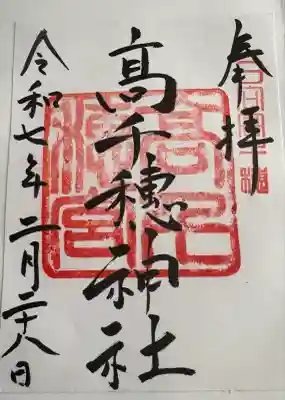 奉拝
髙千穂神社
令和七年二月二十八日